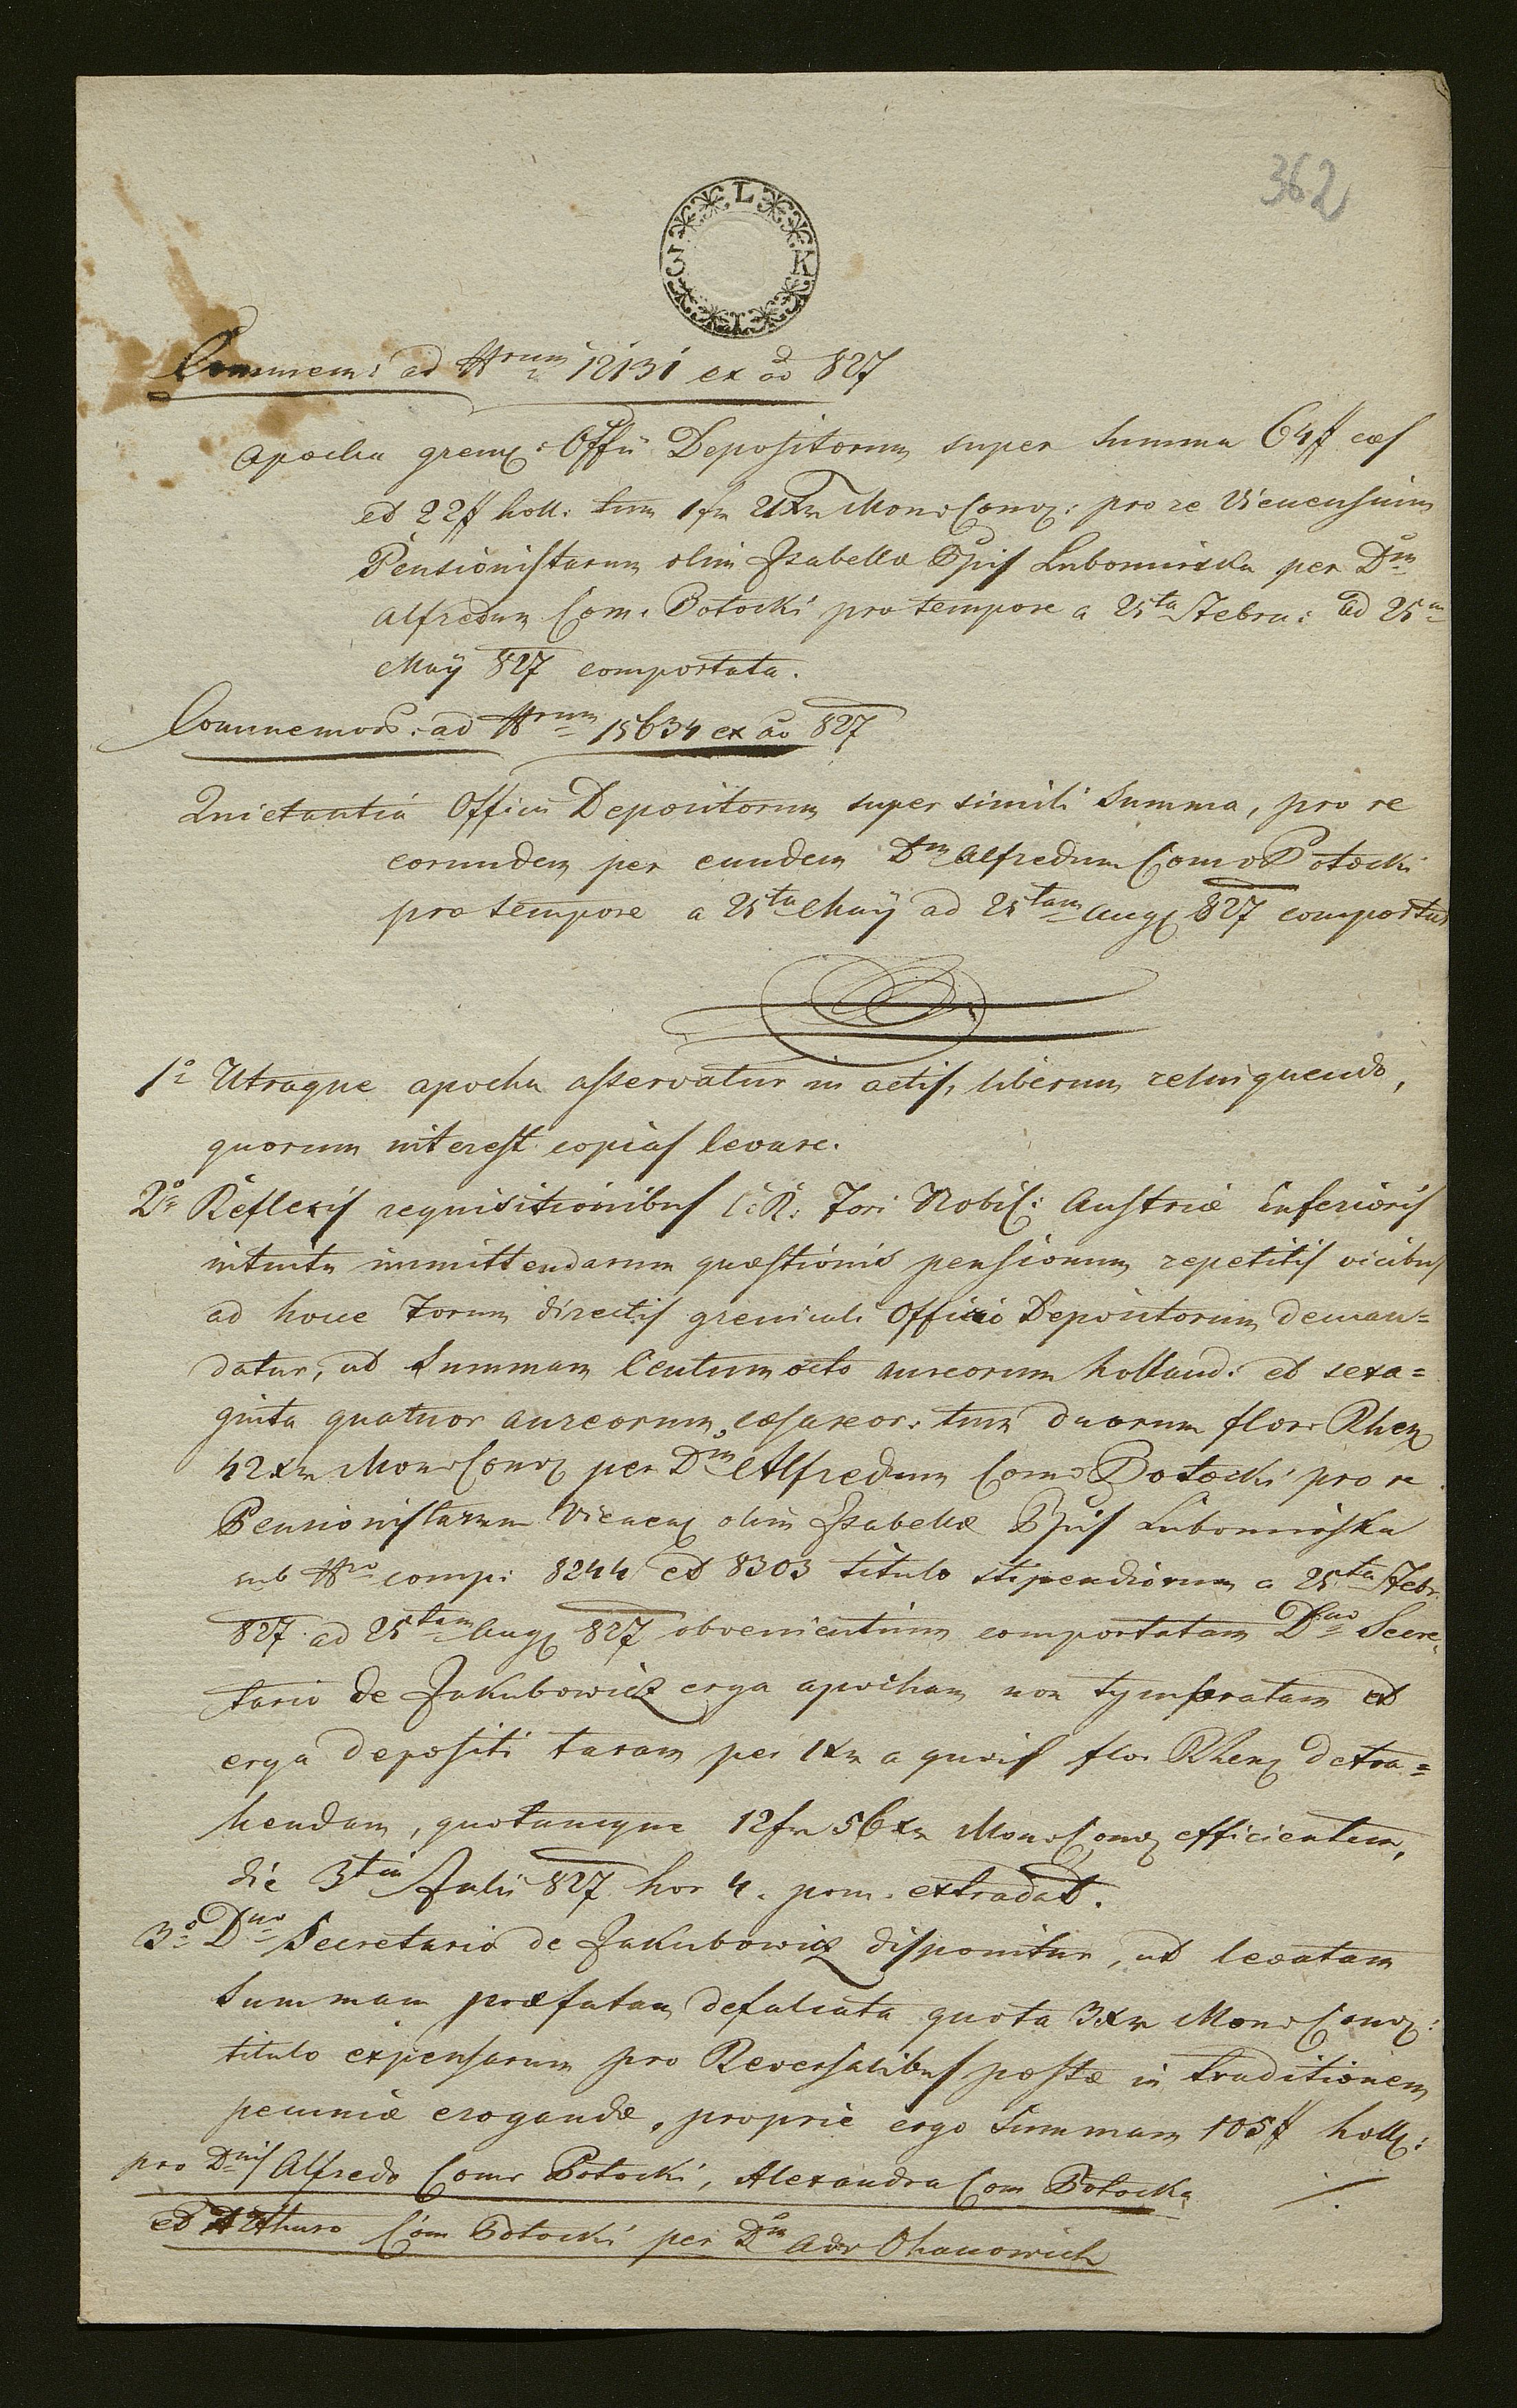 362
L K T 3
Commem: ad Nrum 12131 ex ao 827
Apocha grem: Offii Depositorum super summa 64 # cæs
et 22 # holl: tum 1 fr 21 xr Mon: Conv: pro re Viennensium
Pensionistarum olim Isabellæ Ppis Lubomirska per Dnm
Alfredum Com: Potocki pro tempore a 25ta Febru: ad 25m
Maÿ 827 comportata.
Commemor: ad Nrum 15634 ex ao 827
Quietantia Officii Depositorum super simili Summa, pro re
eorundem per eundem Dnm Alfredum Com: Potocki
pro tempore a 25ta Maÿ ad 25tam Aug: 827 comportat
1o Utraque apocha asservatur in actis, liberum relinquendo,
quorum interest copias levare.
2o Reflexis requisitionibus C: R: Fori Nobil: Austriæ Inferioris
intuitu immittendarum quæstionis pensionum repetitis vicibus
ad hocce Forum directis gremiali Officio Depositorum deman=
datur, ut Summam Centum octo aureorum holland: et sexa=
ginta quatuor aureorum cæsareor: tum duorum flor: Rhen:
42 xr Mon: Conv: per Dnm Alfredum Com: Potocki pro re
Pensionistarum Viennen: olim Isabellæ Ppis Lubomirska
sub Nro comp: 8244 et 8303 titulo stipendiorum a 25ta Febr:
827 ad 25tam Aug: 827 obvenientium comportatam Dno Secre=
tario de Jakubowicz erga apocham non tymfratam et
erga depositi taxam per 1 xr a quovis flor: Rhen: detra=
hendam, quotamque 12 fr 56 xr Mon: Conv: efficientem,
die 3tia Julii 827 hor 4. pom. extradat.
3o Dno Secretario de Jakubowicz disponitur, ut levatam
Summam præfatam defalcata quota 3 xr Mon: Conv:
titulo expensarum pro Reversalibus postæ in traditionem
pecuniæ erogandæ, proprie ergo Summam 105 # holl:
pro Dnis Alfredo Com: Potocki, Alexandra Com Potocka ./.
et Athuro Com Potocki per Dnm Adv Ohanowich